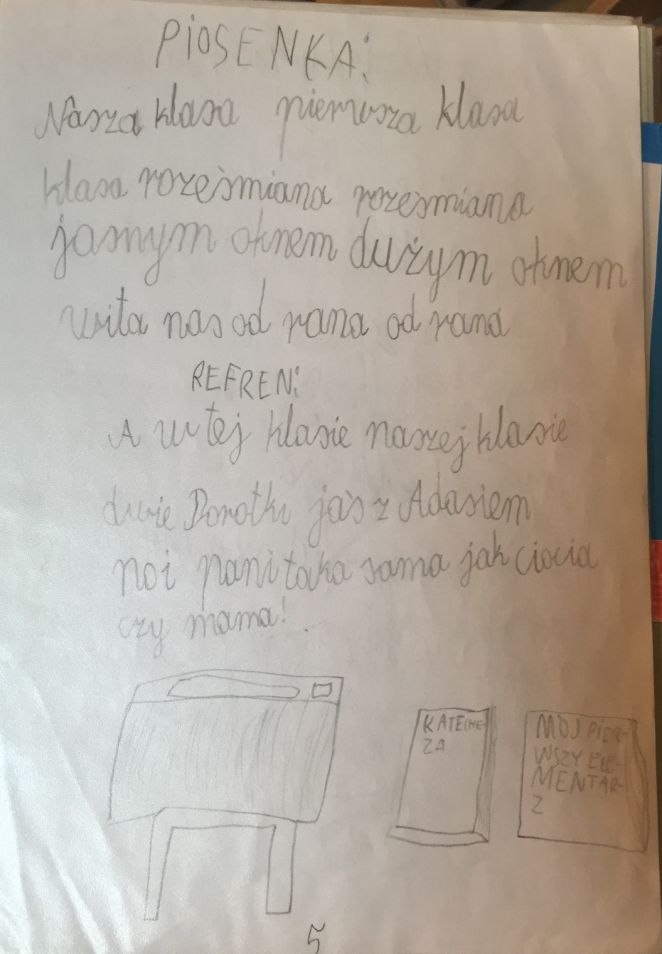 PIOSENKA:
Nasza klasa pierwsza klasa
klasa roześmiana roześmiana
jasnym oknem dużym oknem
wita nas od rana od rana
REFREN:
A w tej klasie naszej klasie
dwie Dorotki jaś z Adasiem
no i pani taka sama jak ciocia
czy mama!
KATECHE-
ZA
MÓJ PIER-
WSZY ELE-
MENTAR-
Z
5